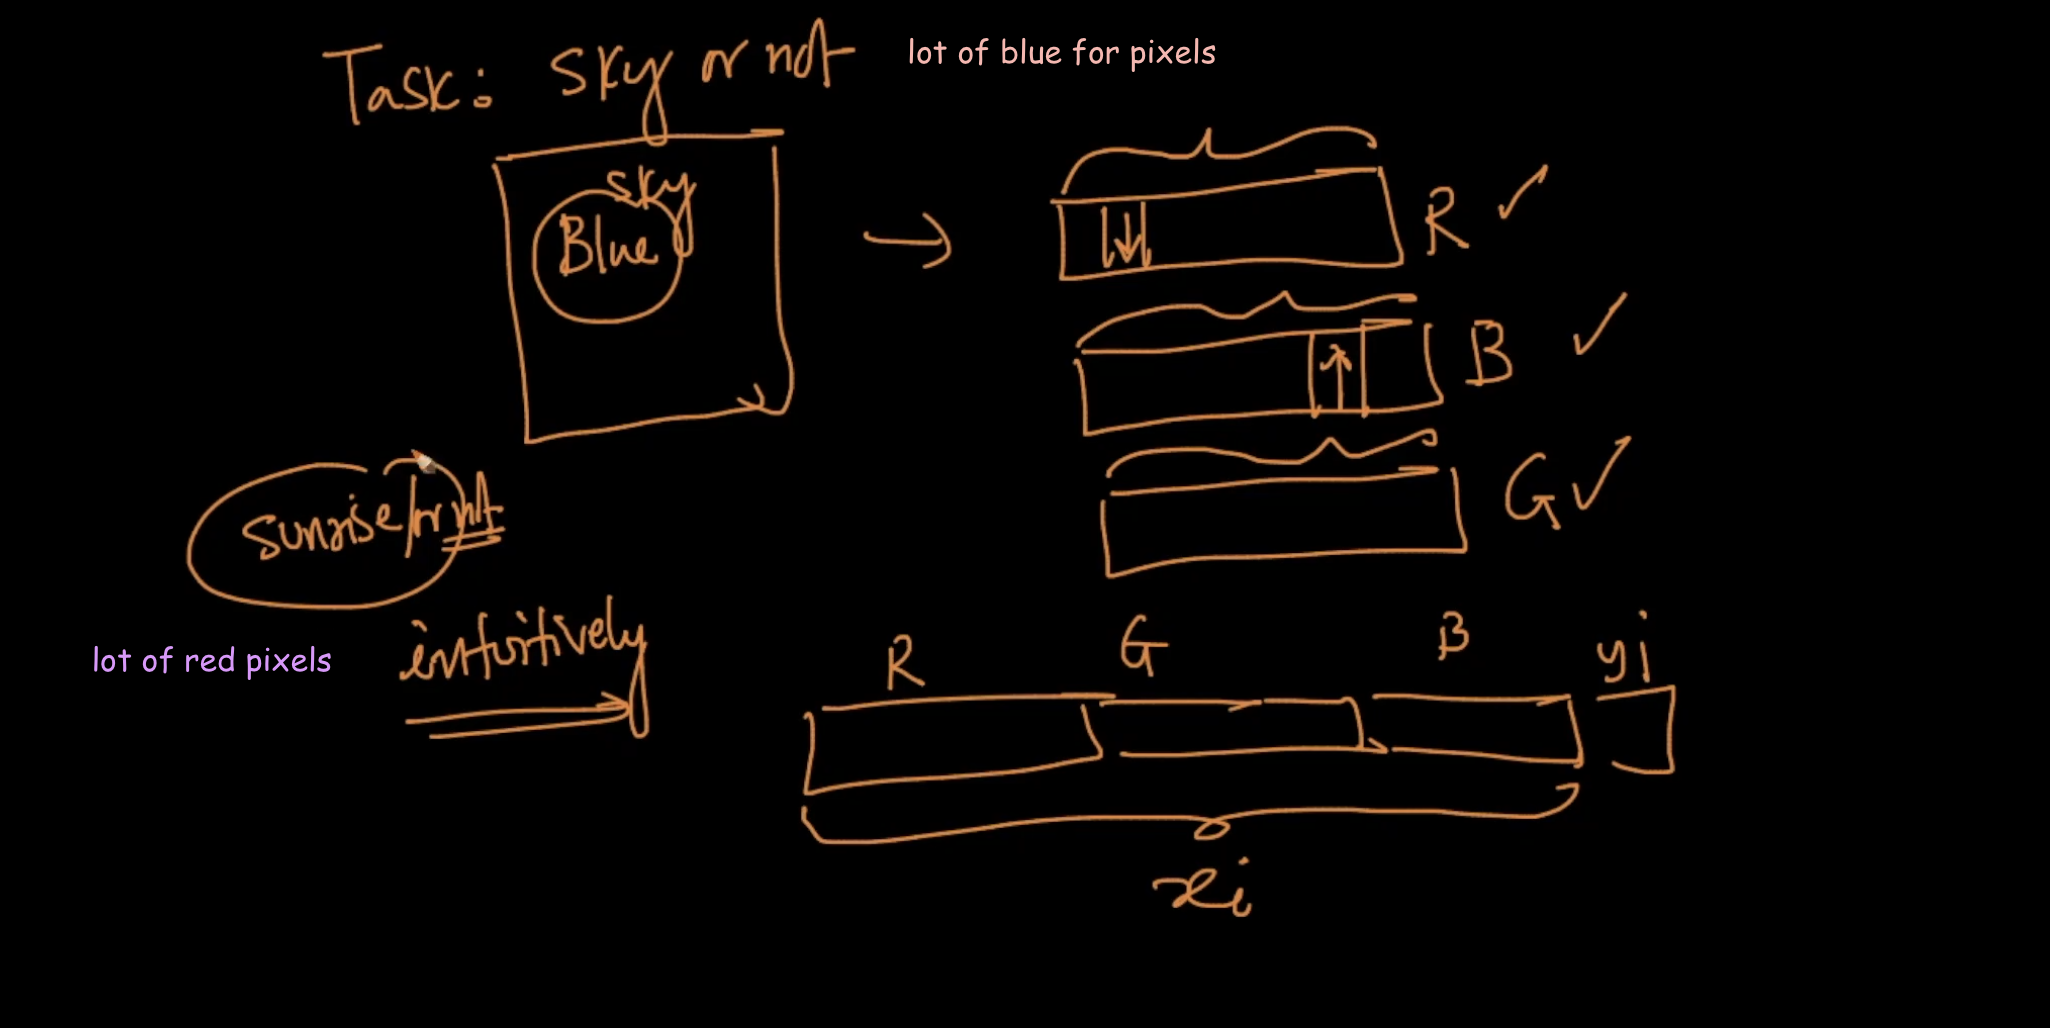 Task: Sky or not
lot of blue for pixels
sky
Blue
R
B
G
sunrise/or not
lot of red pixels
intuitively
R G B yi
xi